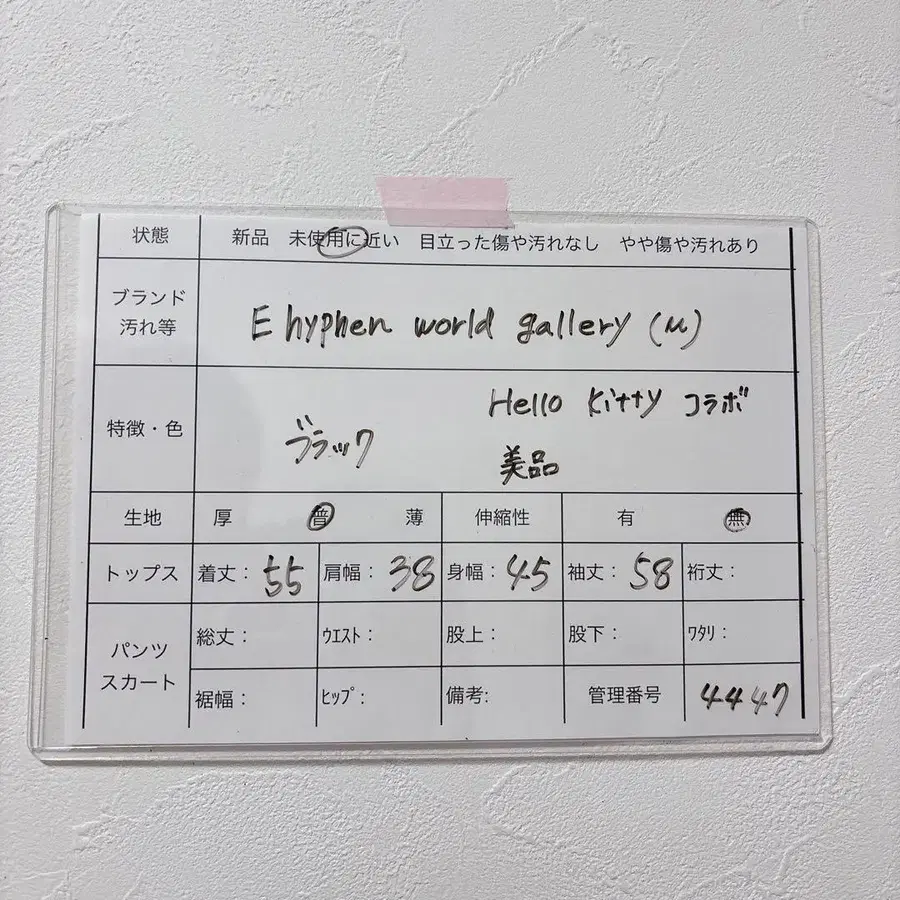 状態 新品 未使用に近い 目立った傷や汚れなし やや傷や汚れあり
ブランド
汚れ等
E hyphen world gallery (M)
特徴・色
ブラック
Hello Kitty コラボ
美品
生地 厚 普 薄 伸縮性 有 無
トップス 着丈: 55 肩幅: 38 身幅: 45 袖丈: 58 裄丈:
パンツ
スカート
総丈: ウエスト: 股上: 股下: ワタリ:
裾幅: ヒップ: 備考: 管理番号 4447